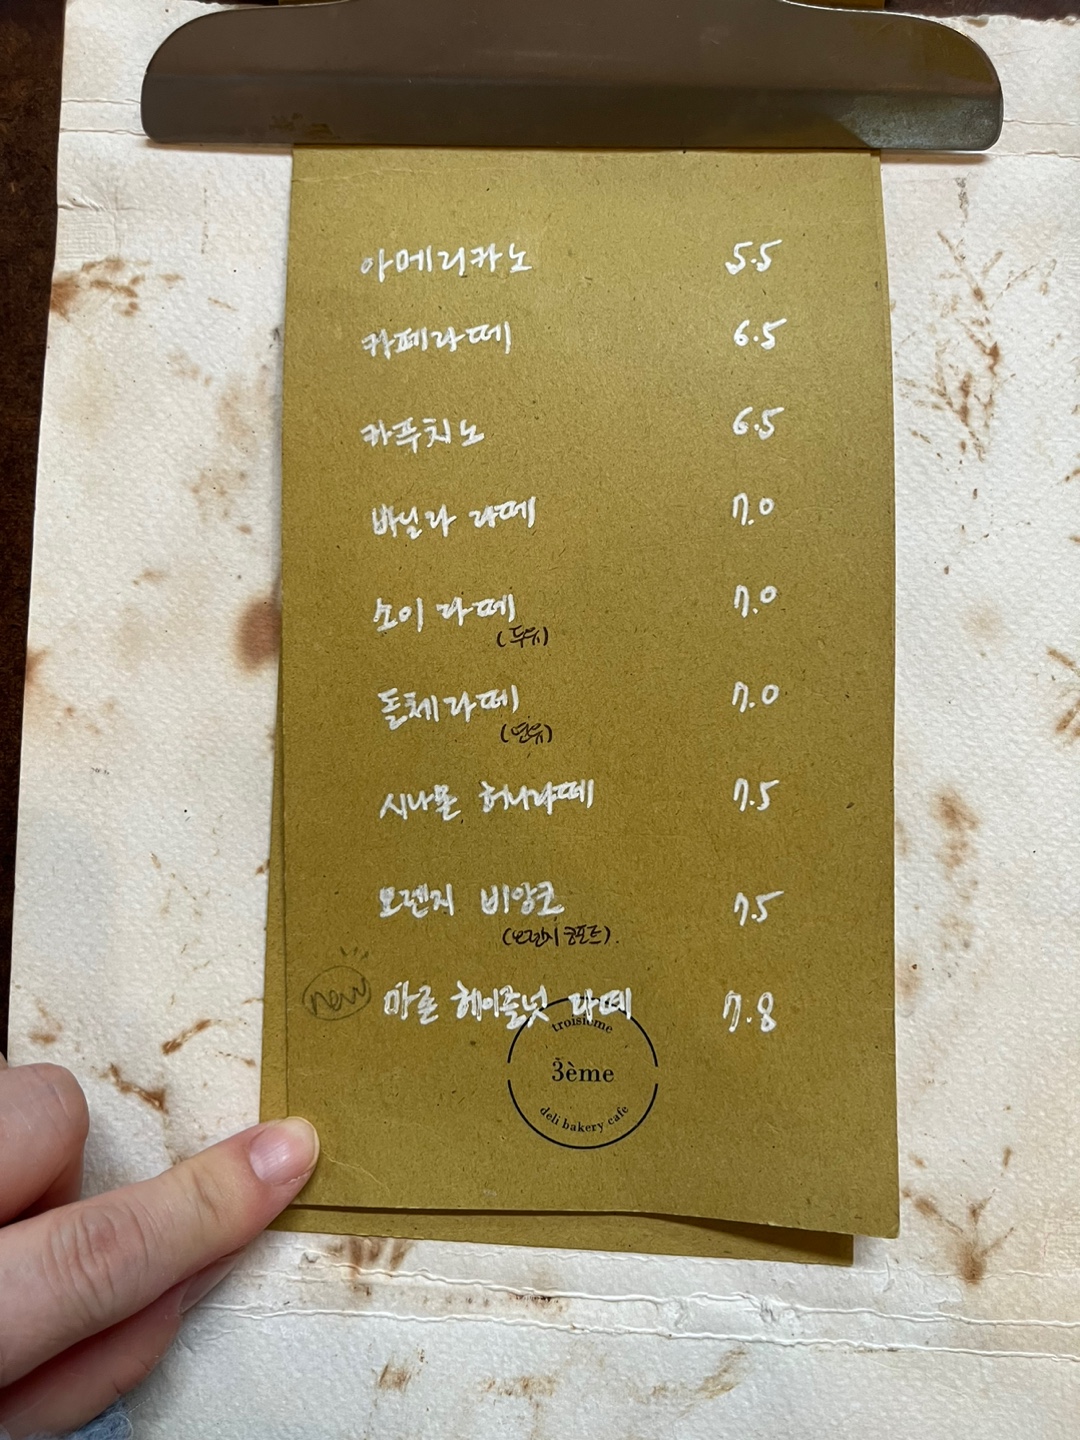 아메리카노 5.5
카페라떼 6.5
카푸치노 6.5
바닐라 라떼 7.0
소이 라떼 7.0
(두유)
돌체라떼 7.0
(연유)
시나몬 허니라떼 7.5
오렌지 비앙코 7.5
(오렌지콩포트).
new 마론 헤이즐넛 라떼 7.8
troisième
3ème
deli bakery cafe